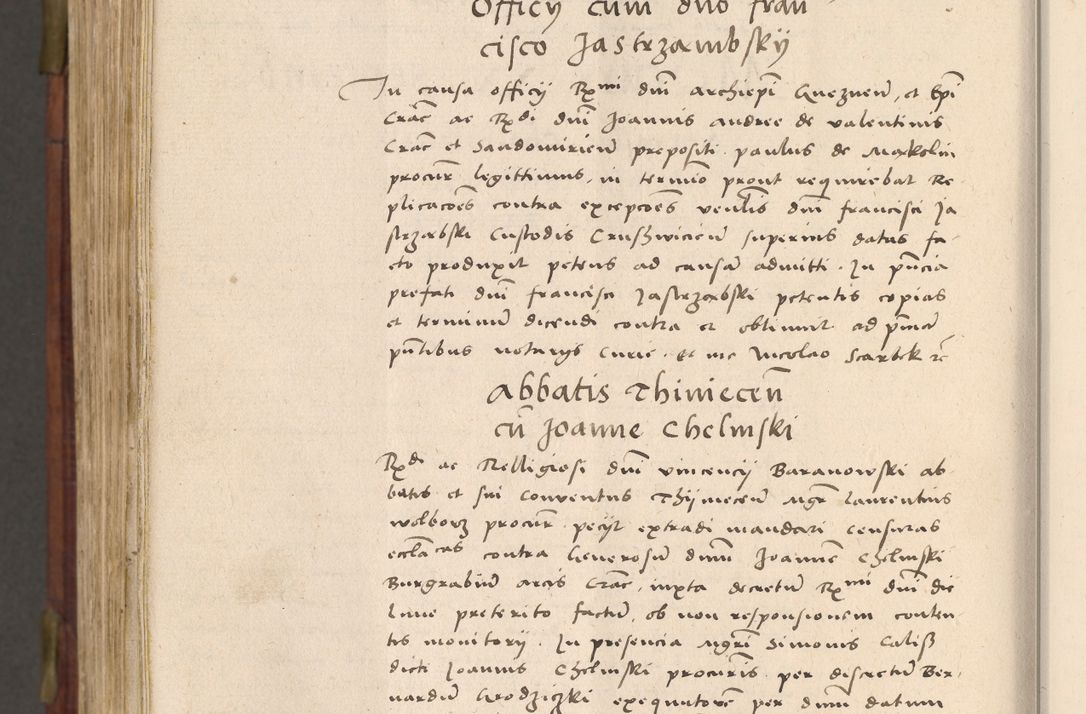 Officij cum dno fran
cisco Jastrzambskij
In causa officij Rxmi dni archiepi Gneznen, et Epi
Crac ac Rxdi dni Joannis Andree de valentinis
Crac et Sandomirien prepositi paulus de Mackolin
procur legittimus, in termio prout requirebat Re
plicacoes contra excepcoes venlis dni francisci Ja
strzabski Custodis Crushwicien superius datas fa-
cto produxit petens ad causa admitti. In pncia
prefati dni francisci Jastrzabski petentis copias
et terminu dicendi contra et obtinuit ad pma
pntibus notarijs Curie. Et me Nicolao Scarbek rc
Abbatis Thiniecen
cu Joanne Chelmski
Rxdi ac Relligiosi dni vincencij Baranowski ab
batis et sui Conventus Thijniecen Mgr Laurentius
wolborz procur pecijt extradi mandari censuras
ecclacas contra Generosu dnum Joanne Chelmski
Burgrabiu arcis Crac, iuxta decretu Rxmi dni die
Lune preterito factu, ob non responsionem conten
tis monitorij. In presencia Mgri Simonis Calisz
dicti Joannis Chelmski procuris per discretu Ber-
nardu Grodziczki exequutore per dnum datum